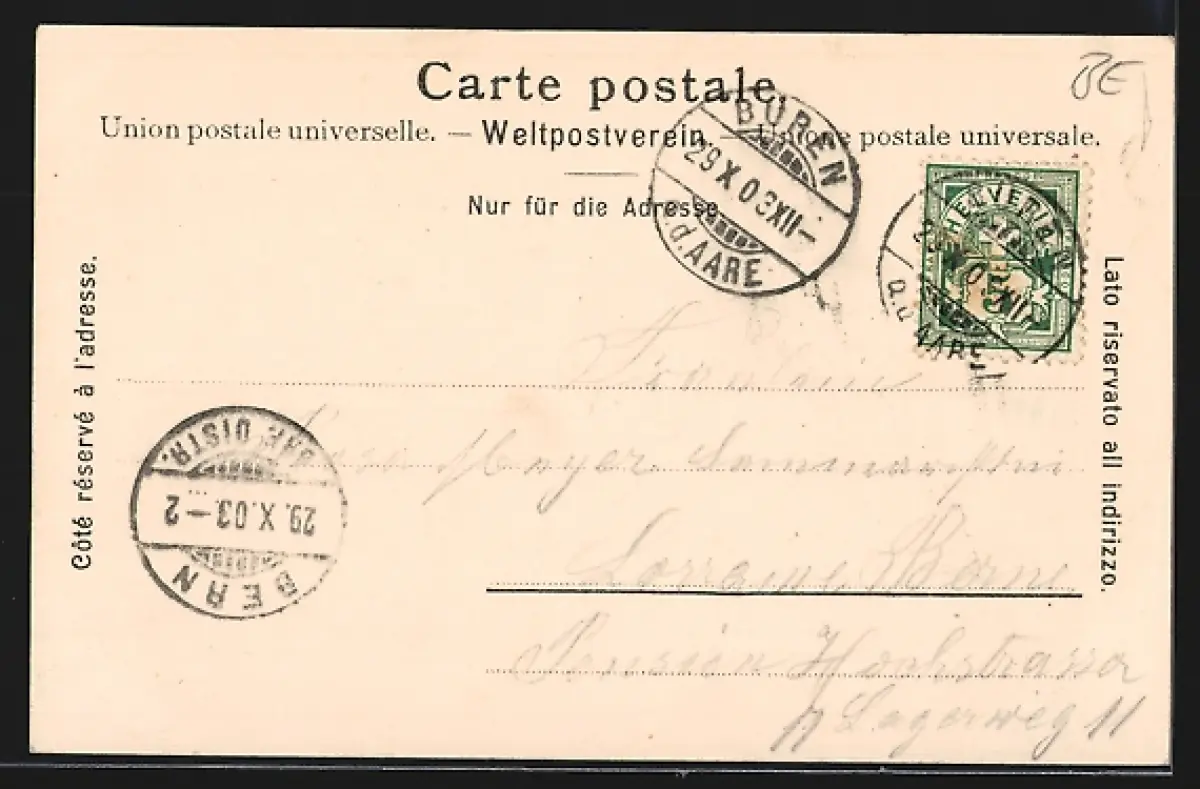 Carte postale.
BE
Union postale universelle. — Weltpostverein. — Unione postale universale.
Nur für die Adresse
Côté réservé à l'adresse.
Lato riservato all indirizzo.
BÜREN
29 X 03 XII–
a.d. AARE
HELVETIA
5
a.d. AARE
Fräulein
Rosa Moyer
Lorraine, Bern
Pension Hochstrasse
Lagerweg 11
BRF. DISTR.
29. X. 03. – 2
BERN